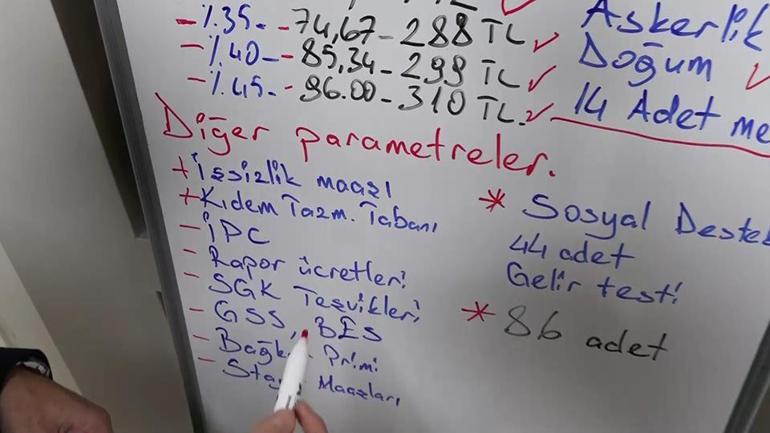 - %35 - - 74,67 - 288 TL ✓
- %40 - - 85,34 - 299 TL ✓
- %45 - - 96.00 - 310 TL. ✓
Askerlik
Doğum ✓
14 Adet me
Diğer parametreler.
+ İşsizlik maaşı
+ Kıdem Tazm. Tabanı
- İPC
- Rapor ücretleri
- SGK Teşvikleri
- GSS, BES
- Primi
- Maaşları
* Sosyal Destek
44 adet
Gelir testi
* 86 adet